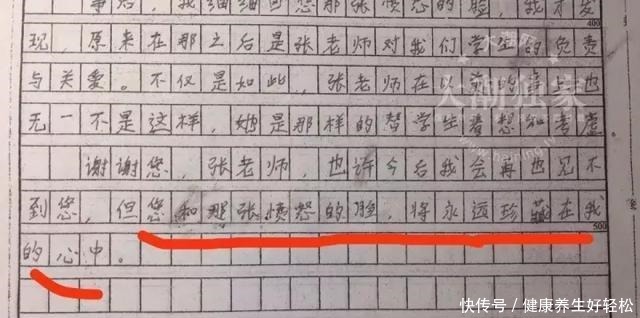 事后，我细细回想那张愤怒的脸，我才发
400
现，原来在那之后是张老师对我们学生的负责
与关爱。不仅是如此，张老师在以前的事上也
无一不是这样，她是那样的替学生着想和考虑
谢谢您，张老师，也许今后我会再也见不
到您，但您和那张愤怒的脸，将永远珍藏在我
500
的心中。
独家
快传号／健康养生好轻松